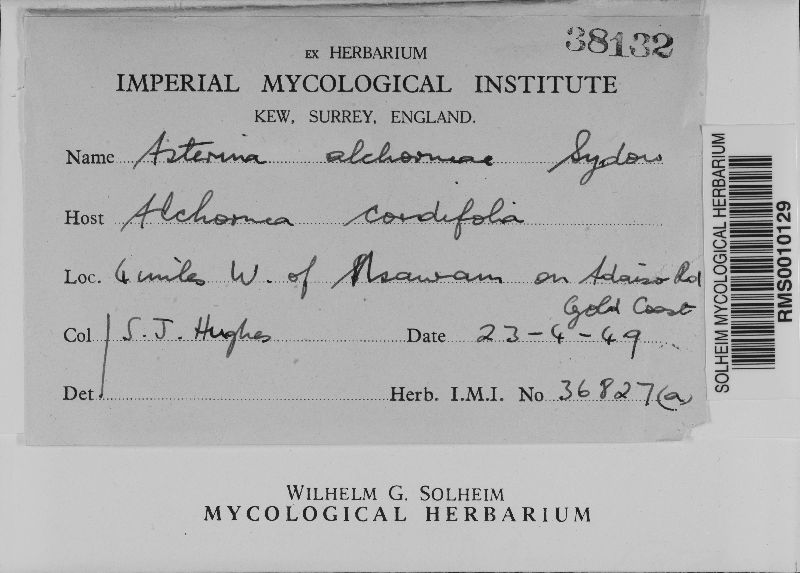 38132
EX HERBARIUM
IMPERIAL MYCOLOGICAL INSTITUTE
KEW, SURREY, ENGLAND.
Name Asterina alchorneae Sydow
Host Alchornea cordifolia
Loc. 4 miles W. of Nsawam on Adaiso Rd
Gold Coast
Col S. J. Hughes Date 23-4-49
Det Herb. I.M.I. No 36827(a)
SOLHEIM MYCOLOGICAL HERBARIUM
RMS0010129
WILHELM G. SOLHEIM
MYCOLOGICAL HERBARIUM